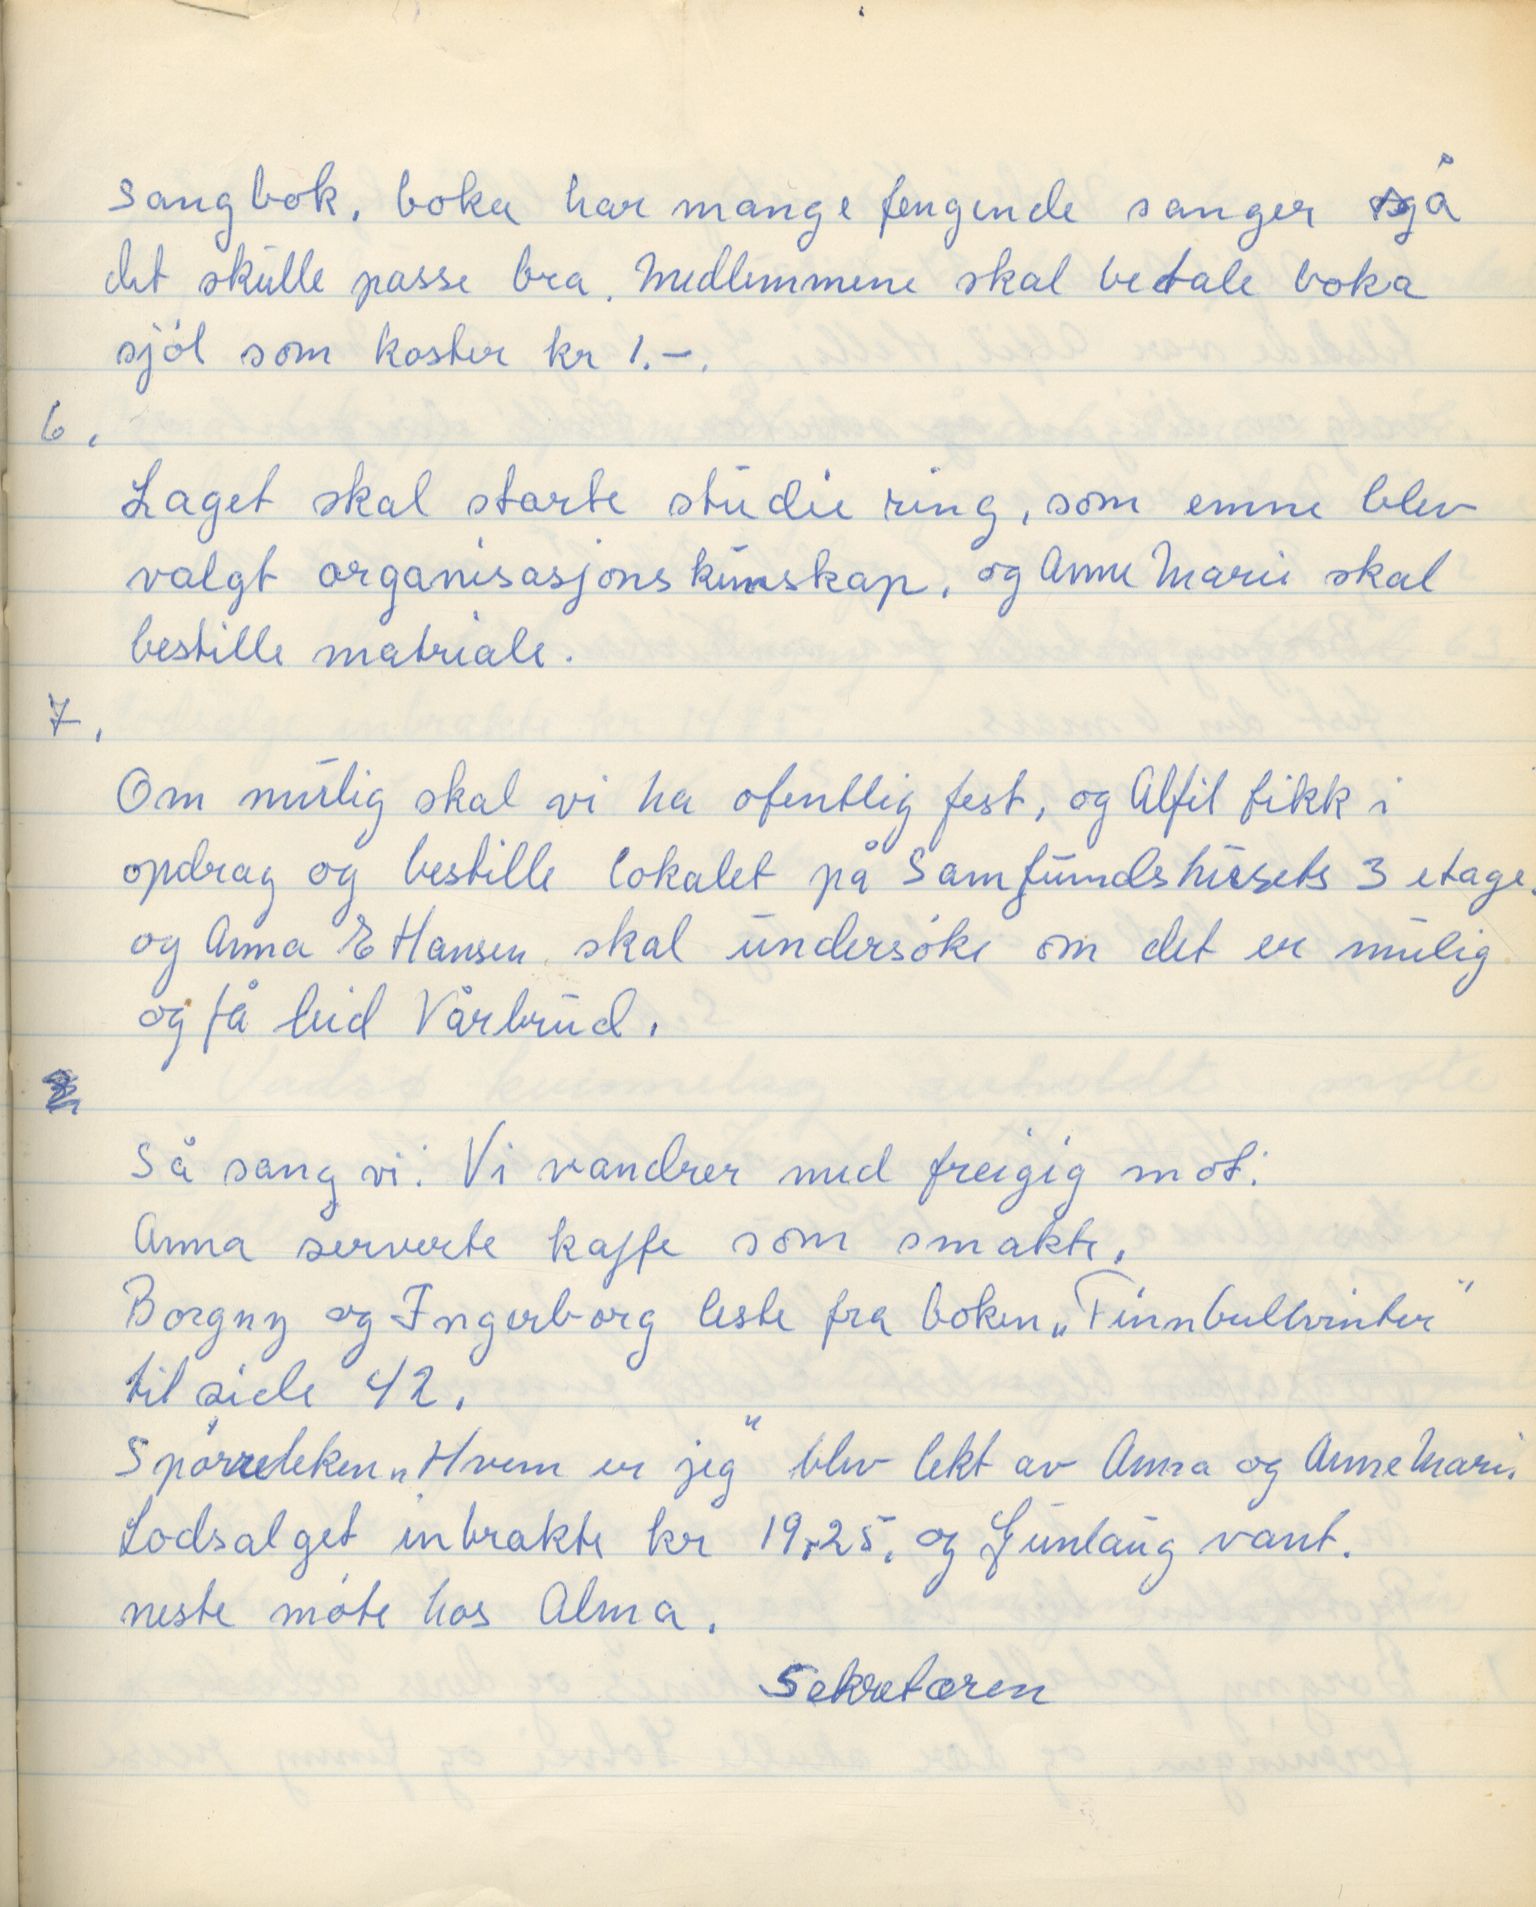 sangbok, boka har mange fengende sanger så
det skulle passe bra. Medlemmene skal betale boka
sjøl som koster kr 1.-.
6.
Laget skal starte studie ring, som emne blev
valgt organisasjonskunskap, og Anne Marie skal
bestille matriale.
7.
Om mulig skal vi ha ofentlig fest, og Alfil fikk i
opdrag og bestille lokalet på Samfundshusets 3 etage.
og Anna E Hansen skal undersøke om det er mulig
og få leid Vårbrud.
Så sang vi: Vi vandrer med freigig mot.
Anna serverte kaffe som smakte.
Borgny og Ingerborg leste fra boken „Finnbullvinter"
til side 42.
Spørreleken „Hvem er jeg" blev lekt av Anna og Anne Mari.
Lodsalget inbrakte kr 19,25, og Gunlaug vant.
neste møte hos Alma.
Sekretæren